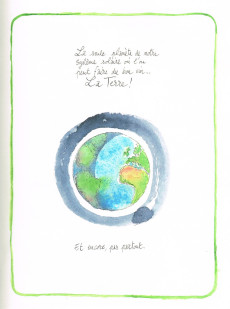 La seule planète de notre
système solaire où l'on
peut faire du bon vin...
La Terre !
Et encore, pas partout.